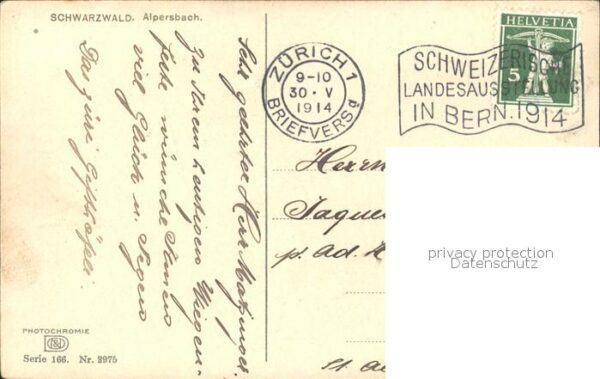 SCHWARZWALD. Alpersbach.
Sehr geehrter Herr
zu Ihrem heutigen Wiegen-
feste wünsche Ihnen
viel Glück u. Segen
Das
PHOTOCHROMIE
Serie 166. Nr. 2975
ZÜRICH 1
9-10
30·V
1914
BRIEFVERSd
HELVETIA
5
SCHWEIZERISCHE
LANDESAUSSTELLUNG
IN BERN.1914
Herrn
Jaques
p. Ad.
St.
privacy protection
Datenschutz